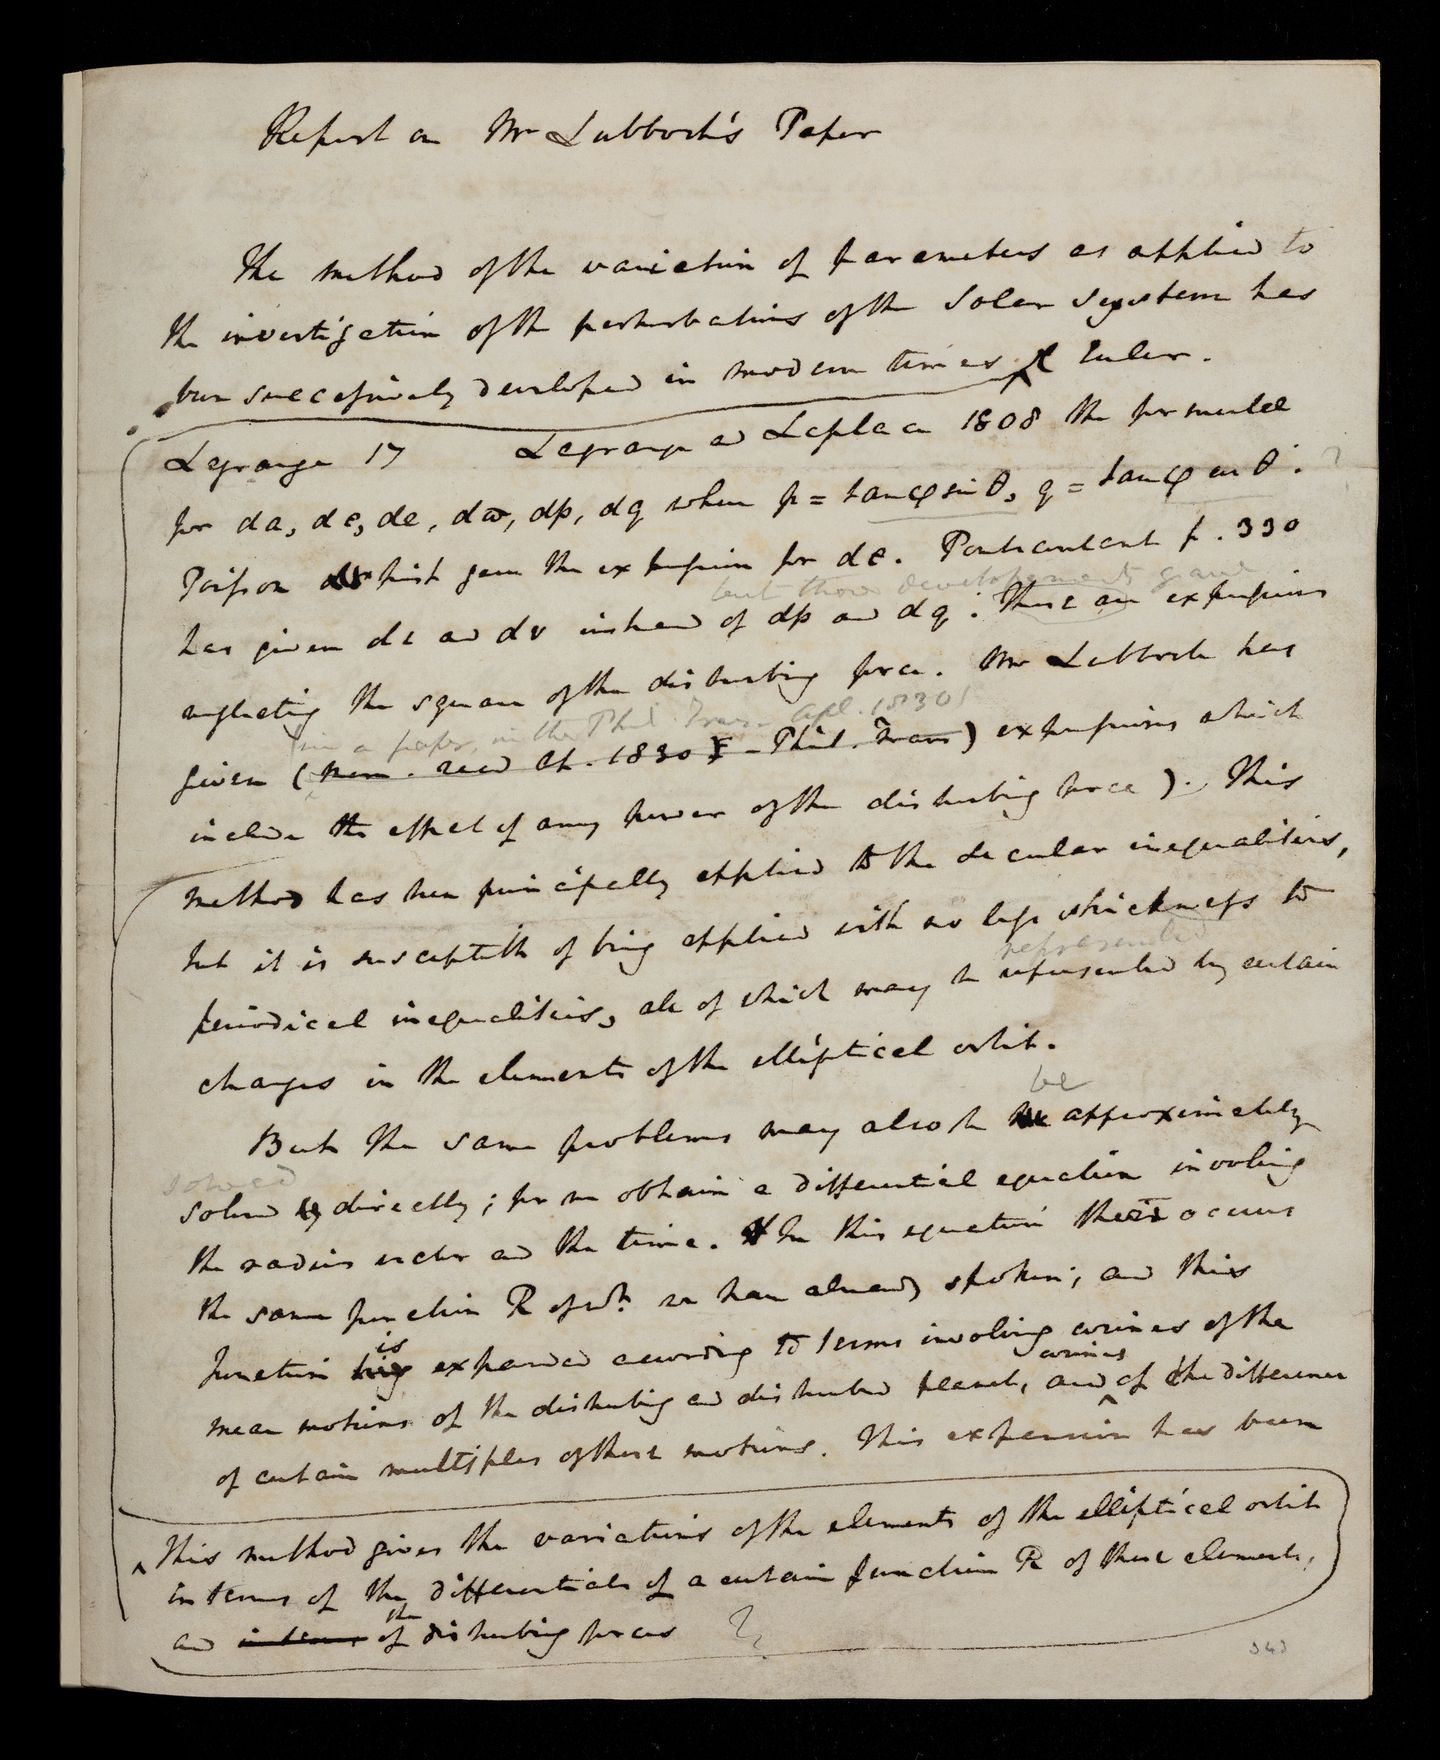 Report on Mr Lubbock's Paper
The method of the variation of parameters as applied to
the investigation of the perturbations of the Solar System has
been successively developed in modern times Euler.
Lagrange 17 Lagrange and Laplace 1808 the formulae
for da, de, de, dϖ, dp, dq when p = tanφ sin θ, q = tanφ cos θ.
Poisson first gave the expression for dε. Pontecoulant p. 330
but those developements
has given dι and dν instead of dp and dq. These are expressions
neglecting the square of the disturbing force. Mr Lubbock has
in a paper, in the Phil. Trans. Apl. 1830
given (Mem. read Ap. 1830 Phil. Trans) expressions which
include the effect of any power of the disturbing force). This
method has been principally applied to the secular inequalities,
but it is susceptible of being applied with no less strictness to
represented
periodical inequalities, all of which may be represented by certain
changes in the elements of the elliptical orbit.
be
But the same problems may also be approximately
solved
solved directly; for we obtain a differential equation involving
the radius vector and the time. In this equation there occurs
the same function R of wh. we have already spoken; and this
is
function being expanded according to terms involving cosines of the
cosines
mean motions of the disturbing and disturbed planet, and of the difference
of certain multiples of these motions. This expansion has been
This method gives the variations of the elements of the elliptical orbit
in terms of the differentials of a certain function R of these elements,
the
and in terms of disturbing forces ?
343